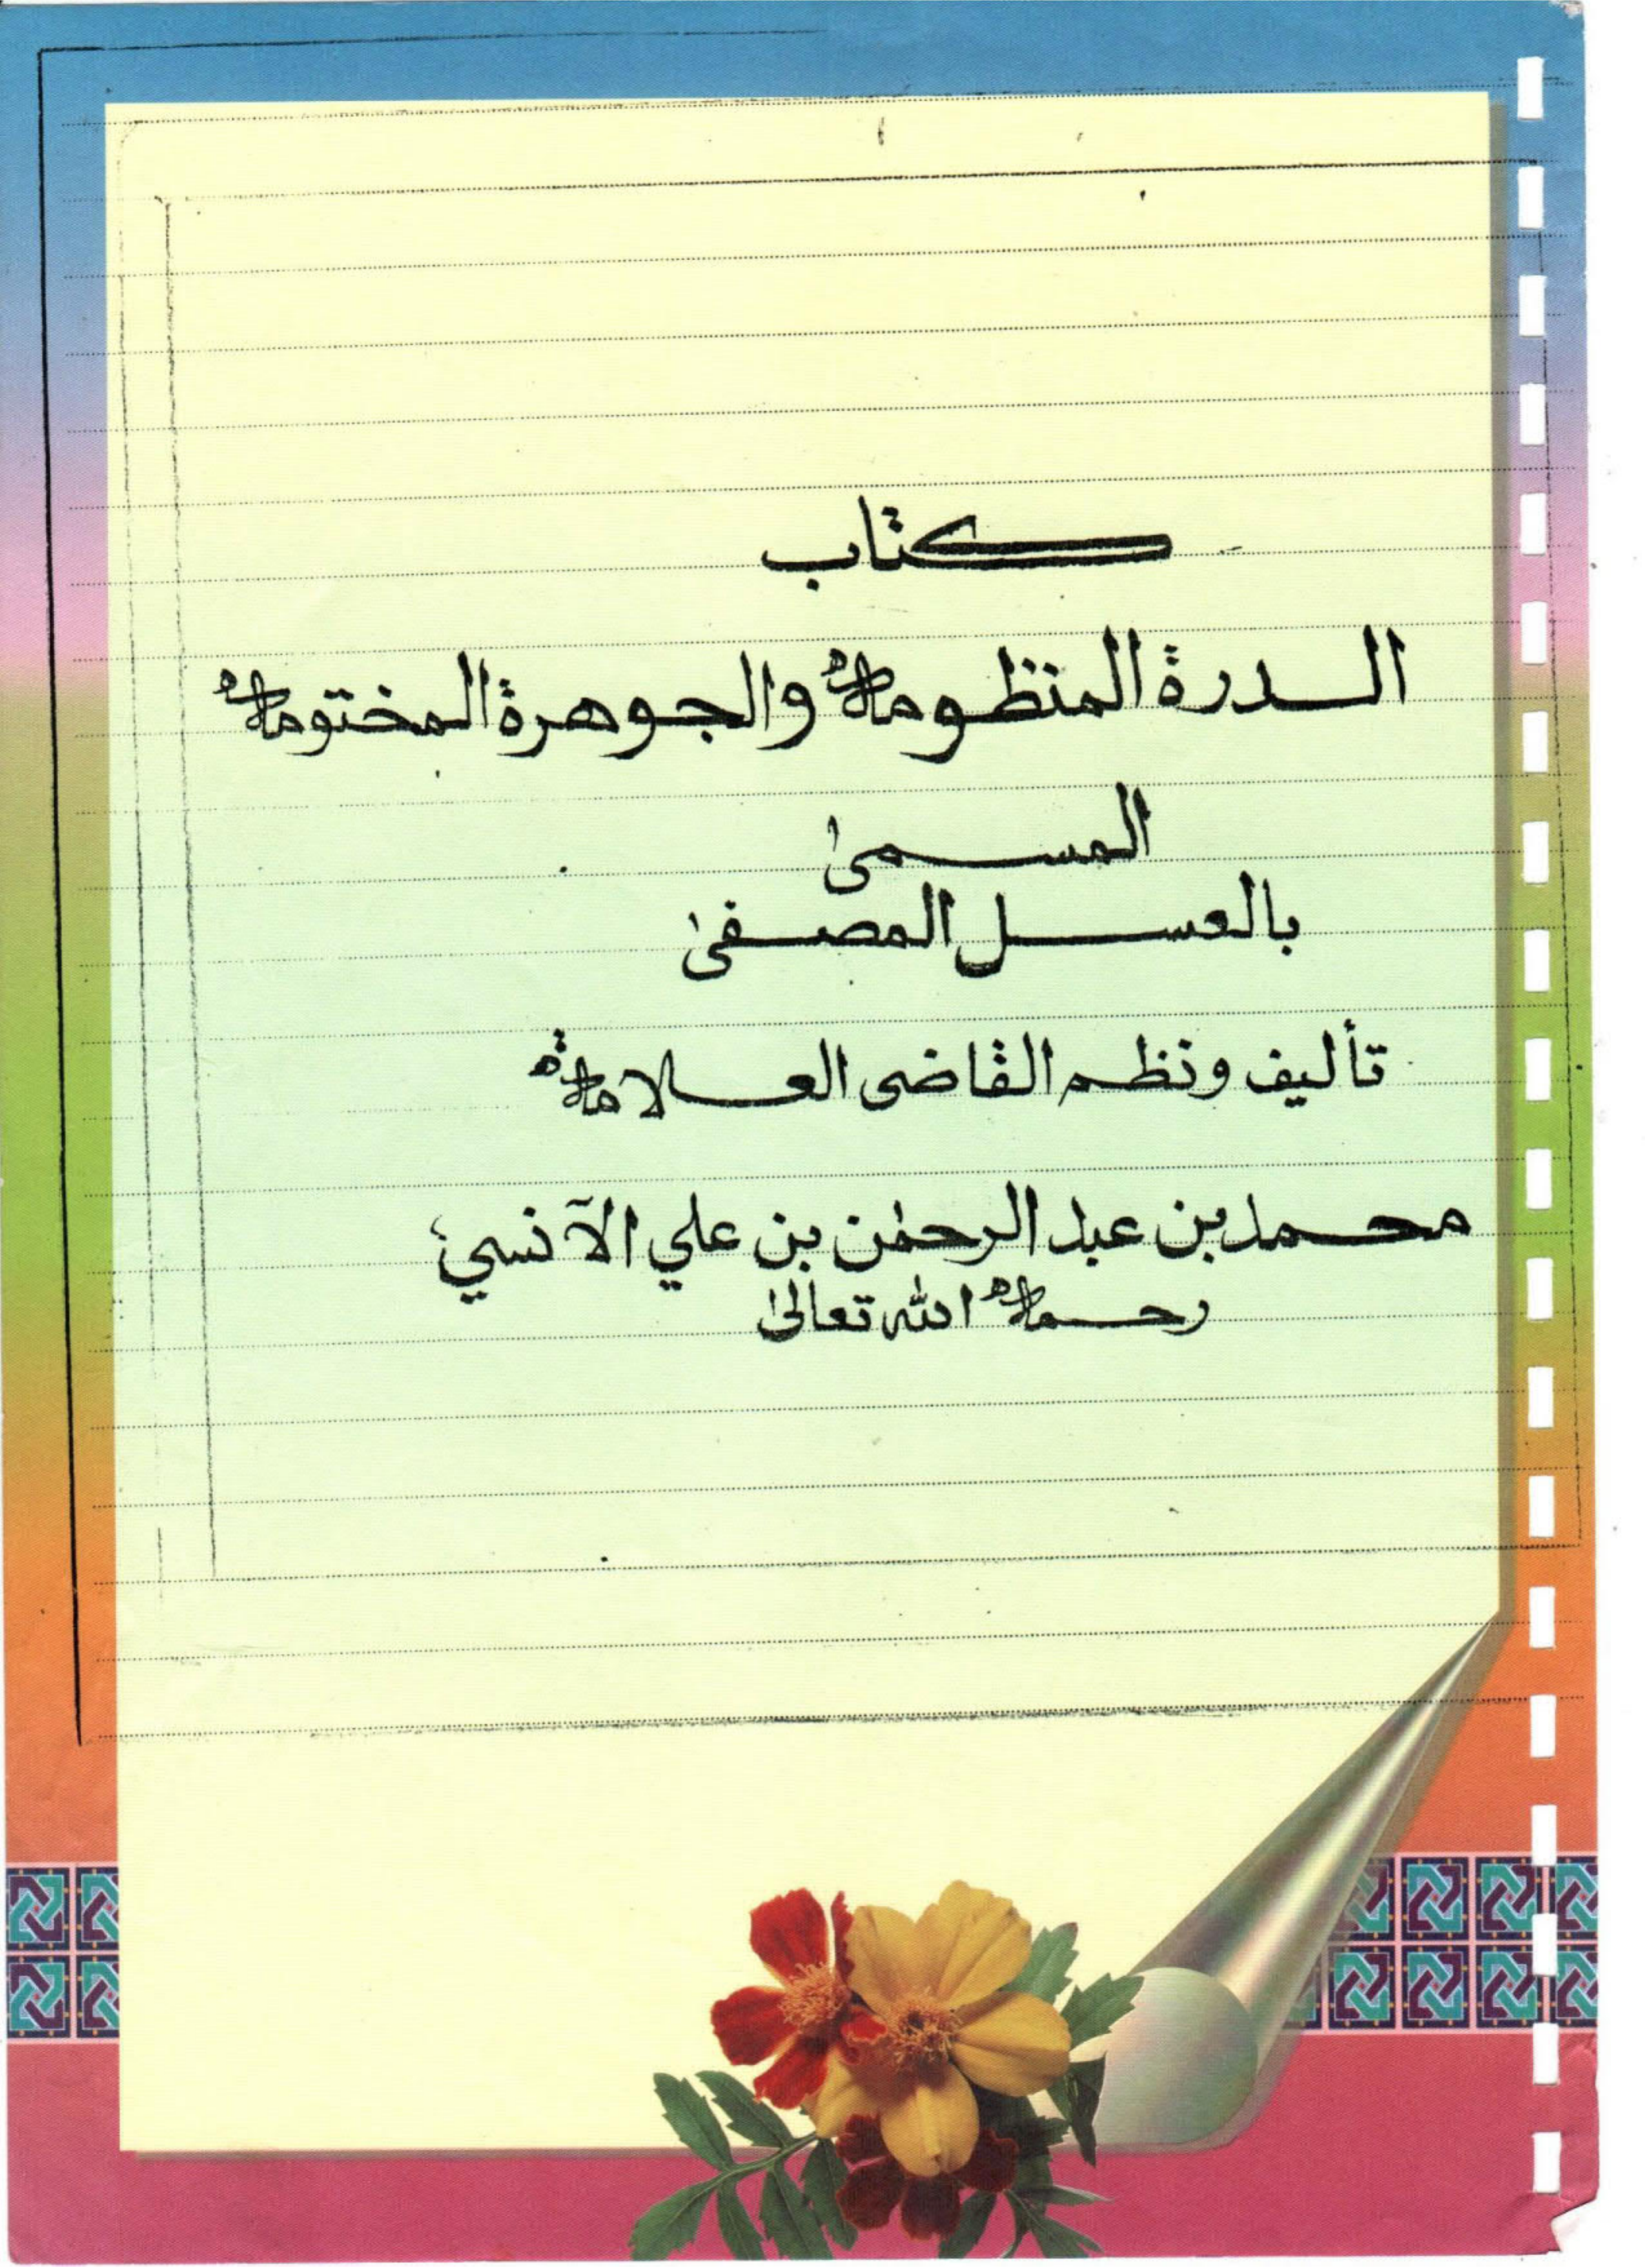 كتاب
الدرة المنظومه والجوهرة المختومه
المسمى
بالعسل المصفى
تأليف ونظم القاضى العلامة
محمد بن عبد الرحمٰن بن علي الآنسي
رحمه الله تعالىٰ